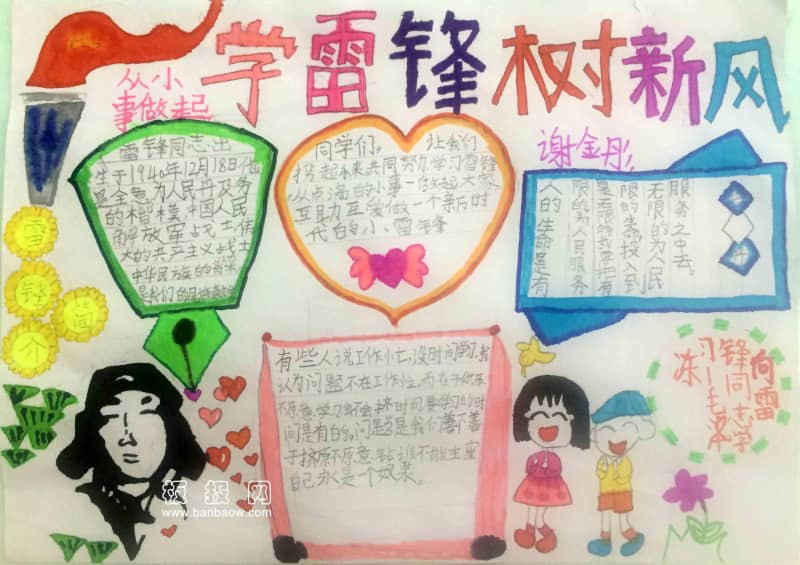 学雷锋树新风
从小
事做起
雷锋同志出
生于1940年12月18日他
是全意为人民
的楷模中国人民
解放军战士伟
大的共产主义战士
中华民族的
是我们的
同学们。让我们
携起手来共同努力学习雷锋
从点滴的小事一做起大家
互助互爱做一个新时
代的小、雷锋
谢金彤
服务之中去。
无限的为人民
限的生命投入到
限的为人民服务
人的生命是有
雷
锋
简
介
有些人说工作忙,没时间学习,我
认为问题不在工作忙,而在于你愿
不愿意学习会不会挤时间要学习的时
间是有的。问题是我们善不善
于挤愿不愿意
自己永是个奴隶。
向雷
锋同志学
习—毛泽
东
板报网
www.banbaow.com